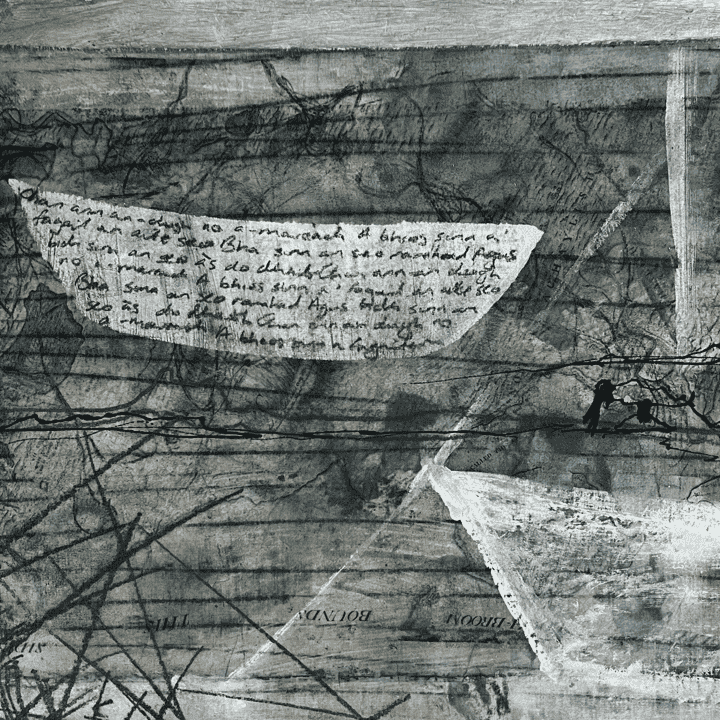 Chan ann an-diugh no a-maireach A bhios sinn a'
fagail an aite seo Bha sinn an seo romhad Agus
bidh sinn an seo às do dheidh Chan ann an diugh
no a-maireach A bhios sinn a' fagail an aite seo
Bha sinn an seo romhad Agus bidh sinn an
seo às do dheidh Chan ann an diugh no
a-maireach A bhios sinn a
BROOM
BOUNDS
THIS